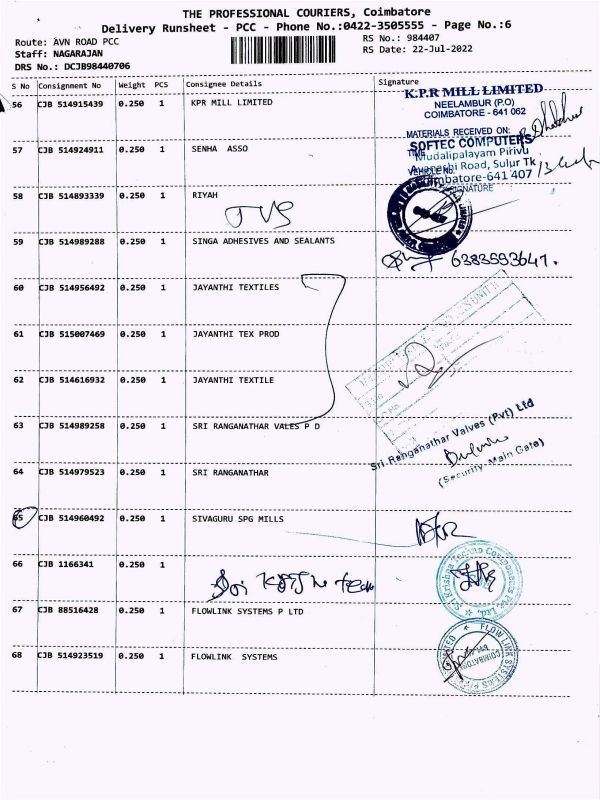 THE PROFESSIONAL COURIERS, Coimbatore
Delivery Runsheet - PCC - Phone No.:0422-3505555 - Page No.:6
Route: AVN ROAD PCC
RS No.: 984407
Staff: NAGARAJAN
RS Date: 22-Jul-2022
DRS No.: DCJB98440706
S No Consignment No Weight PCS Consignee Details Signature
56 CJB 514915439 0.250 1 KPR MILL LIMITED
K.P.R MILL LIMITED
NEELAMBUR (P.O)
COIMBATORE - 641 062
MATERIALS RECEIVED ON:
57 CJB 514924911 0.250 1 SENHA ASSO
SOFTEC COMPUTERS
Mudalipalayam Pirivu
Avanashi Road, Sulur Tk
Coimbatore-641 407
SIGNATURE
58 CJB 514893339 0.250 1 RIYAH
TVS
59 CJB 514989288 0.250 1 SINGA ADHESIVES AND SEALANTS
6383593641.
60 CJB 514956492 0.250 1 JAYANTHI TEXTILES
61 CJB 515007469 0.250 1 JAYANTHI TEX PROD
62 CJB 514616932 0.250 1 JAYANTHI TEXTILE
63 CJB 514989258 0.250 1 SRI RANGANATHAR VALES P D
Sri Ranganathar Valves (Pvt) Ltd
(Security Main Gate)
64 CJB 514979523 0.250 1 SRI RANGANATHAR
65 CJB 514960492 0.250 1 SIVAGURU SPG MILLS
66 CJB 1166341 0.250 1
Sri Krishna Techno Components
67 CJB 88516428 0.250 1 FLOWLINK SYSTEMS P LTD
68 CJB 514923519 0.250 1 FLOWLINK SYSTEMS
FLOW LINK SYSTEMS
COIMBATORE